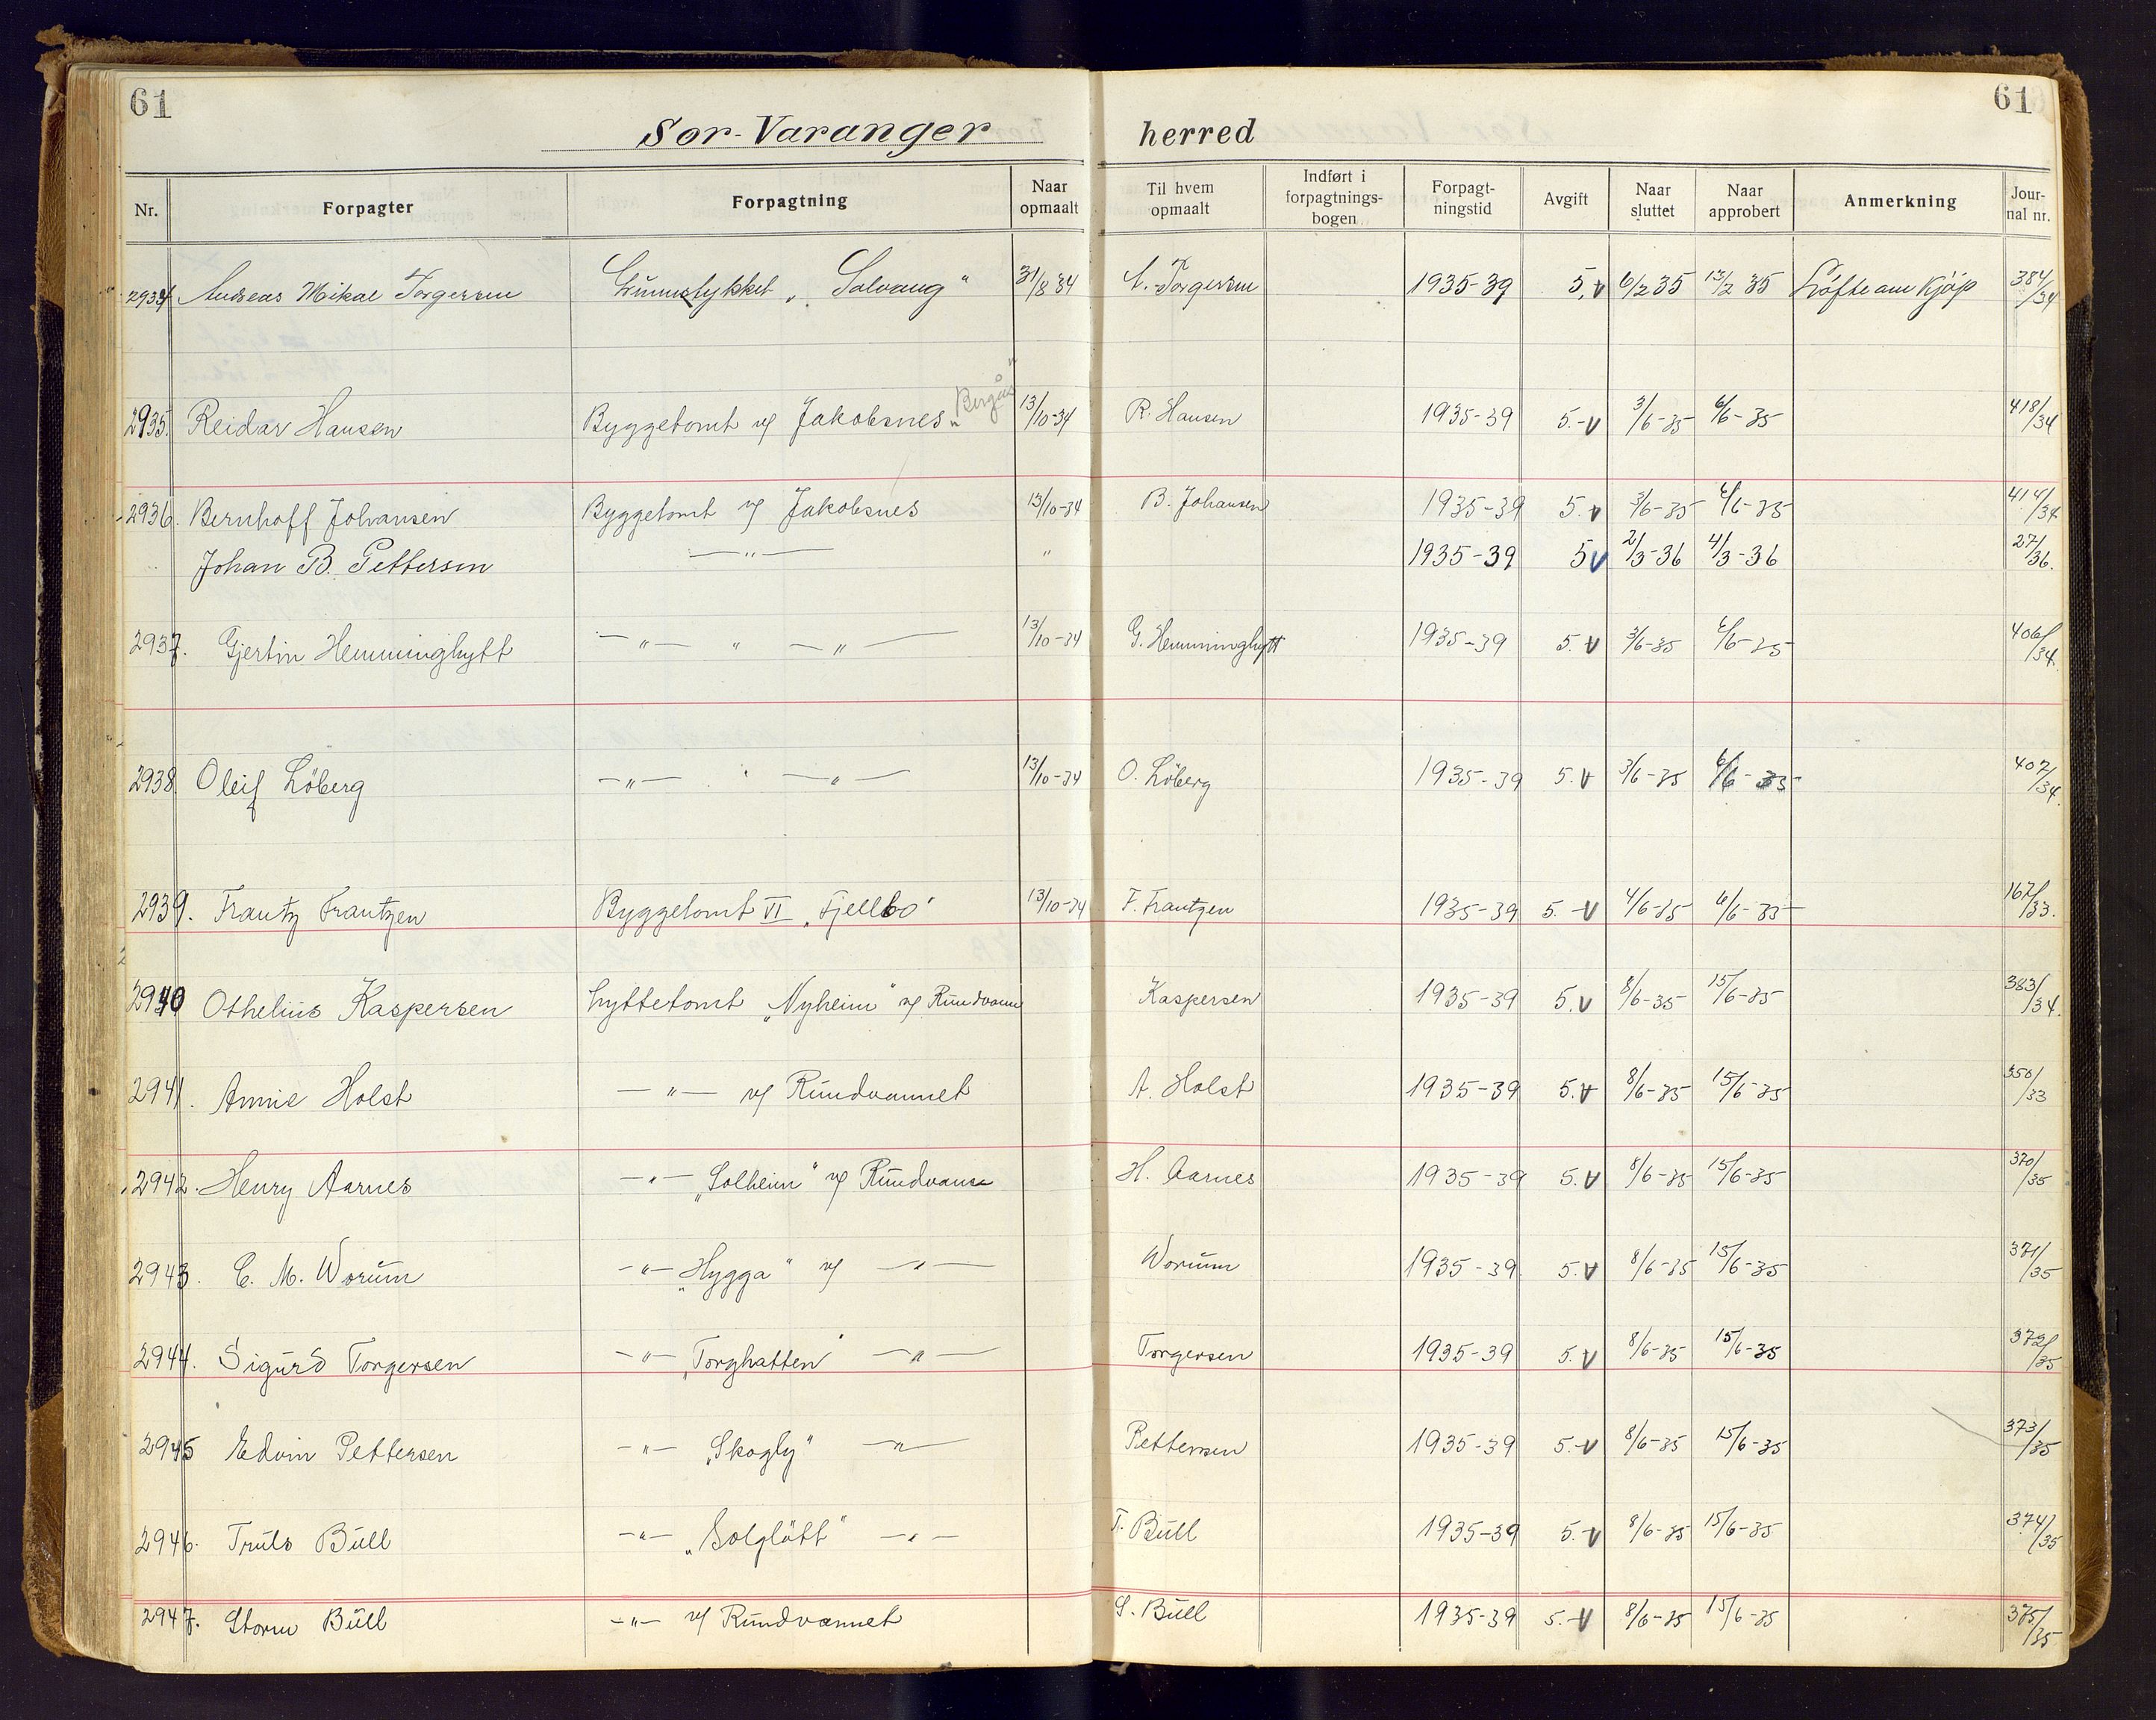 61 61
Sør-Varanger herred
Nr. Forpagter Forpagtning Naar opmaalt Til hvem opmaalt Indført i forpagtnings-bogen Forpagt-ningstid Avgift Naar sluttet Naar approbert Anmerkning Jour-nal nr.
2934 Andreas Mikal Torgersen Grunnstykket „Solvang" 31/8 34 A. Torgersen 1935-39 5,- 6/2 35 13/2 35 Løfte om kjöp 384/34
2935. Reidar Hansen Byggetomt v/ Jakobsnes „Bergås" 13/10-34 R. Hansen 1935-39 5.- 3/6-35 6/6-35 418/34
2936. Bernhoff Johansen Byggetomt v/ Jakobsnes 13/10-34 B. Johansen 1935-39 5. 3/6-35 6/6-35 414/34
Johan B. Pettersen —"— " 1935-39 5 2/3-36 4/3-36 27/36.
2937. Gjertin Hemminghytt —"— " —"— 13/10-34 G. Hemminghytt 1935-39 5. 3/6-35 6/6-35 406/34.
2938. Oleif Löberg —"— " —"— 13/10-34 O. Löberg 1935-39 5. 3/6-35 6/6-35 407/34.
2939. Frantz Frantzen Byggetomt VI „Fjellbo" 13/10-34 F. Frantzen 1935-39 5.- 4/6-35 6/6-35 167/33.
2940 Othelius Kaspersen Hyttetomt „Nyheim" v/ Rundvann Kaspersen 1935-39 5. 8/6-35 15/6-35 383/34.
2941. Annie Holst —"— v/ Rundvannet A. Holst 1935-39 5. 8/6-35 15/6-35 350/33
2942. Henry Aarnes —"— „Solheim" v/ Rundvann H. Aarnes 1935-39 5. 8/6-35 15/6-35 370/35
2943. C. M. Worum —"— „Hygga" v/ —"— Worum 1935-39 5. 8/6-35 15/6-35 371/35
2944. Sigurd Torgersen —"— „Torghatten" —"— Torgersen 1935-39 5. 8/6-35 15/6-35 372/35
2945 Edvin Pettersen —"— „Skogly" —"— Pettersen 1935-39 5.- 8/6-35 15/6-35 373/35
2946. Truls Bull —"— „Solglött" —"— T. Bull 1935-39 5.- 8/6-35 15/6-35 374/35
2947. Storm Bull —"— v/ Rundvannet S. Bull 1935-39 5.- 8/6-35 15/6-35 375/35